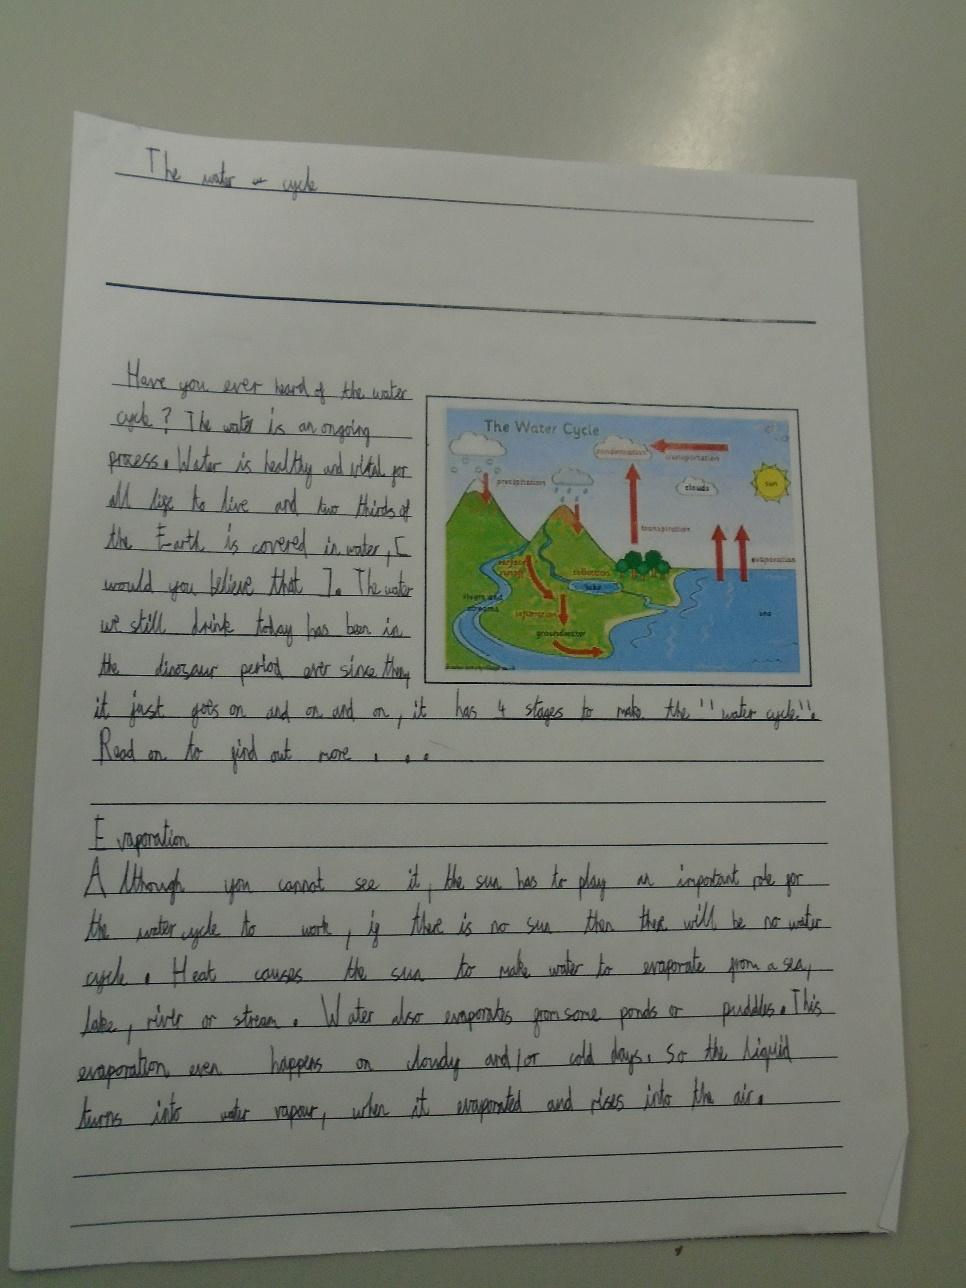 The water cycle
Have you ever heard of the water
cycle? The water is an ongoing
process. Water is healthy and vital for
all life to live and two thirds of
the Earth is covered in water, [
would you believe that ]. The water
we still drink today has been in
the dinosaur period ever since they
it just goes on and on and on, it has 4 stages to make the "water cycle".
Read on to find out more . . .
The Water Cycle
condensation
transportation
precipitation
clouds
sun
transpiration
evaporation
surface runoff
collection
lake
rivers and streams
infiltration
sea
groundwater
Evaporation
Although you cannot see it, the sun has to play an important role for
the water cycle to work, if there is no sun then there will be no water
cycle. Heat causes the sun to make water to evaporate from a sea,
lake, river or stream. Water also evaporates from some ponds or puddles. This
evaporation even happens on cloudy and/or cold days. So the liquid
turns into water vapour, when it evaporated and rises into the air.